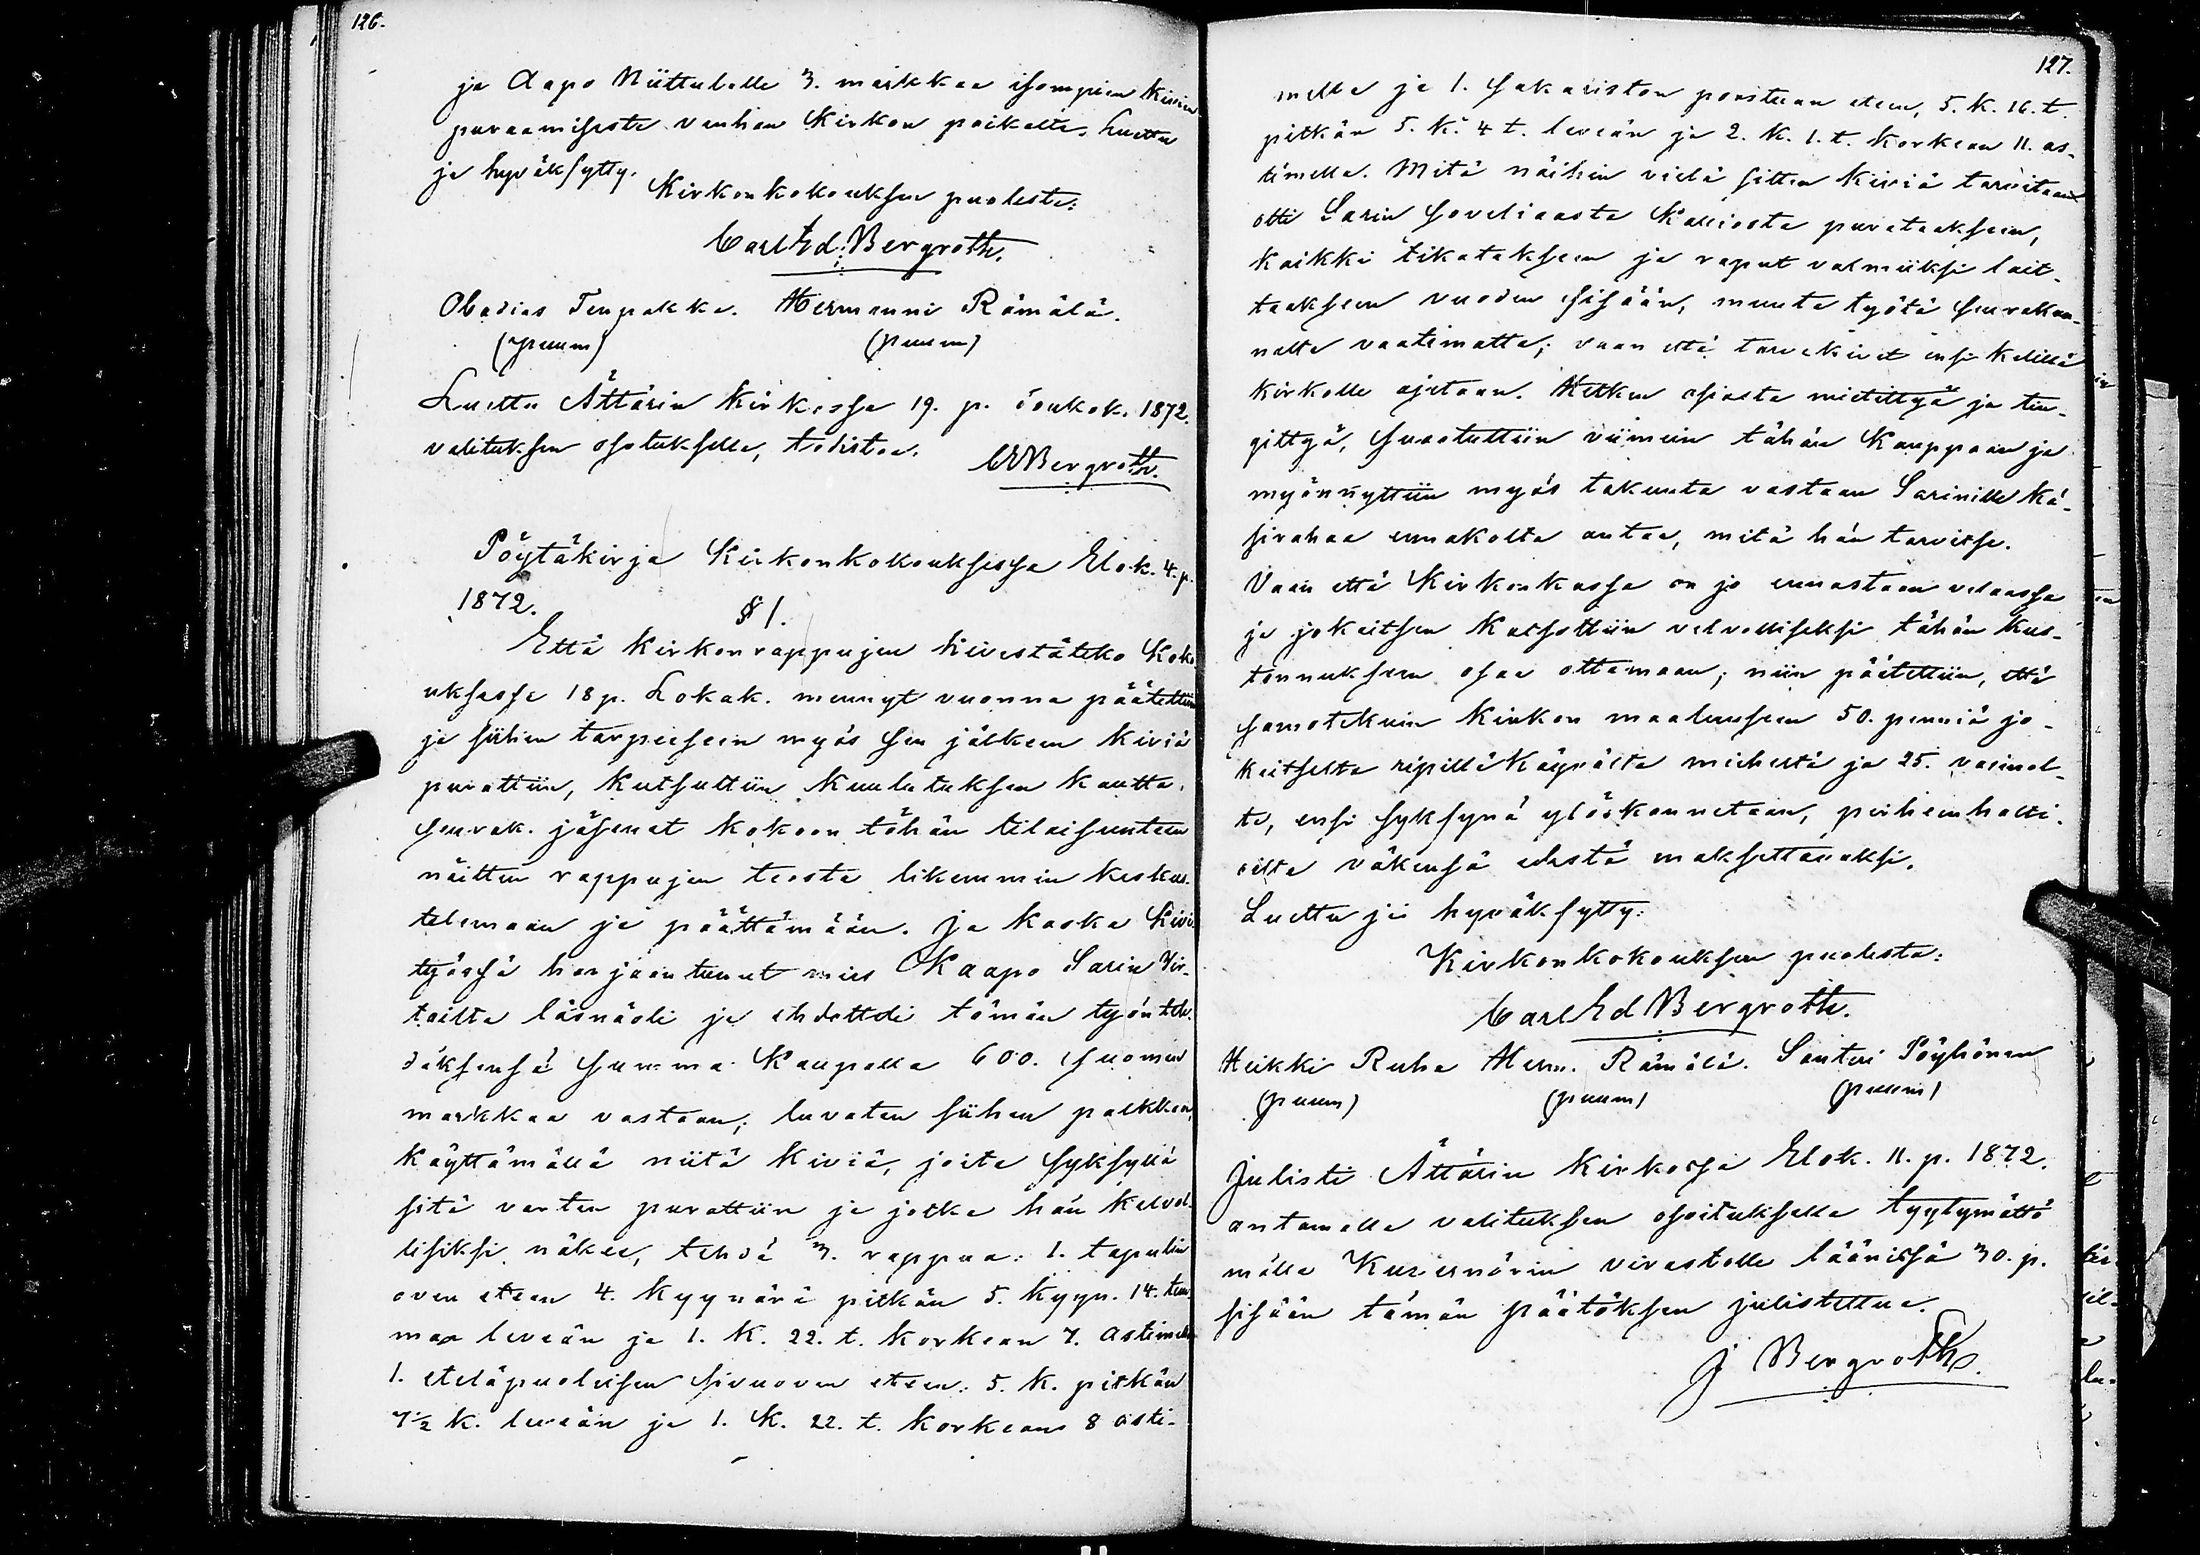 126.
ja Aapo Niittulalle 3. markkaa isompien kivien
puraamisesta vanhan Kirkon paikalta. Luettu
ja hyväksytty.
Kirkonkokouksen puolesta:
Carl Ed: Bergroth.
Obadias Tenpakka. Hermanni Rämälä.
(puum) (puum)
Luettu Ättärin Kirkossa 19. p. toukok. 1872.
valituksen osotuksella, todistaa.
CEBergroth.
Pöytäkirja Kirkonkokouksessa Elok. 4. p.
1872. § 1.
Että kirkonrappujen kivestäteko Koko
uksessa 18 p. Lokak. mennyt vuonna päätettiin
ja siihen tarpeeseen myös sen jälkeen kiviä
purattiin, kutsuttiin kuulutuksen kautta
seurak. jäsenet kokoon tähän tilaisuuteen
näitten rappujen teosta likemmin keskus-
telemaan ja päättämään. Ja koska kivi
työssä harjaantunut mies Kaapo Sarin Vir-
tailta läsnäoli ja ehdotteli tämän työn teh-
däksensä summa kaupalla 600. Suomen
markkaa vastaan; luvaten siihen palkkaan,
käyttämällä niitä kiviä, joita syksyllä
sitä varten purattiin ja jotka hän kelvol-
lisiksi näkee, tehdä 3. rappua: 1. tapulin
oven eteen 4. kyynärä pitkän 5. kyyn. 14. tuu
maa leveän ja 1. K. 22. t. korkean 7. astimella
1. eteläpuoleisen sivuoven eteen: 5. K. pitkän
7½ K. leveän ja 1. K. 22. t. korkean 8 asti-
127.
mella ja 1. Sakariston porstuan eteen, 5. K. 16. t.
pitkän 5. K. 4 t. leveän ja 2. K. 1. t. korkean 11. as-
timella. Mitä näihin vielä sitten kiviä tarvitaan
otti Sarin soveliaasta Kalliosta purataksein,
kaikki tikataksen ja raput valmiiksi lait-
taaksen vuoden sisään, muuta työtä seurakun-
nalta vaatimatta; vaan että tarvekivet ensi kelillä
kirkolle ajetaan. Hetken asiasta mietittyä ja tin-
gittyä, suostuttiin viimein tähän Kauppaan ja
myönnyttiin myös takuuta vastaan Sarinille kä-
sirahaa ennakolta antaa, mitä hän tarvitse.
Vaan että Kirkonkassa on jo ennastaan velaassa
ja jokaitsen katsottiin velvolliseksi tähän kus-
tannukseen osaa ottamaan; niin päätettiin, että
samotekuin Kirkon maalauseen 50. penniä jo-
kaitselta ripillä käyvältä mieheltä ja 25. vaimol-
ta, ensi syksynä ylöskannetaan, perheenhalti-
oilta väkensä edestä maksettavaksi.
Luettu ja hyväksytty:
Kirkonkokouksen puolesta:
Carl Ed Bergroth.
Heikki Ruha Herm. Rämälä. Santeri Pöyhönen
(puum) (puum) (puum)
Julisti Ättärin Kirkossa Elok. 11. p. 1872.
antamalla valituksen osoituksella tyytymättö
mälle Kuvernörin virastolle läänissä 30. p.
sisään tämän päätöksen julistettua.
J Bergroth.